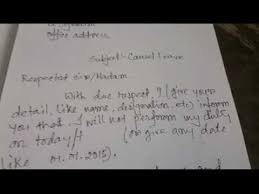 Office address
Subject:- Cancel Leave
Respected Sir/Madam
With due respect, I (give your
detail, like name, designation, etc) inform
you that I will not perform my duty
on today/t (or give any date
like 01.01.2015).